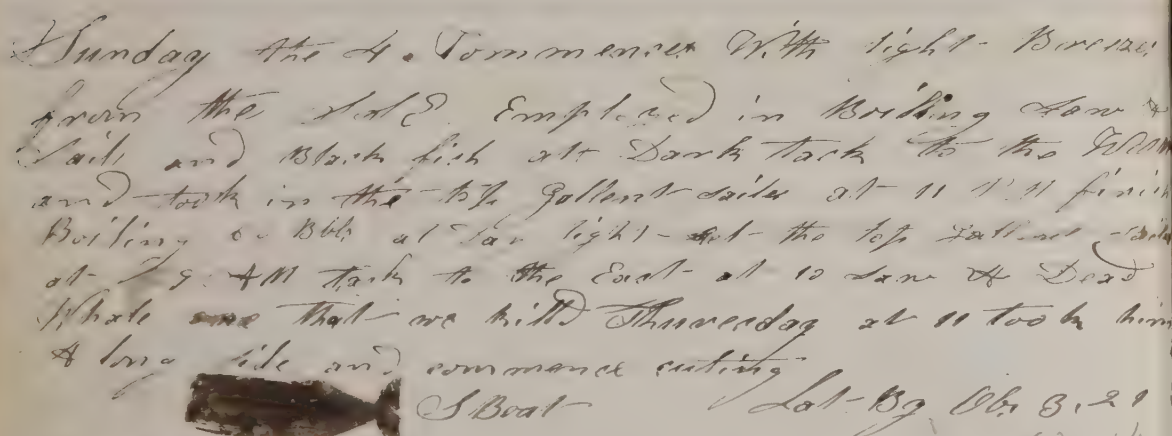 Sunday the 4. Commences With light Breezes
from the Employed in Boiling Saw A
Sail and Black fish at Dark tack to the
and took in the top Gallent Sailes at 11 P M finish
Boiling Bbls at Day light Set the top Gallent Sails
at 9 AM tack to the East at 10 Saw A Dead
Whale one that we killd Thursesday at 11 took him
A long side and commence cuting
S Boat Lat By Obs 3,21